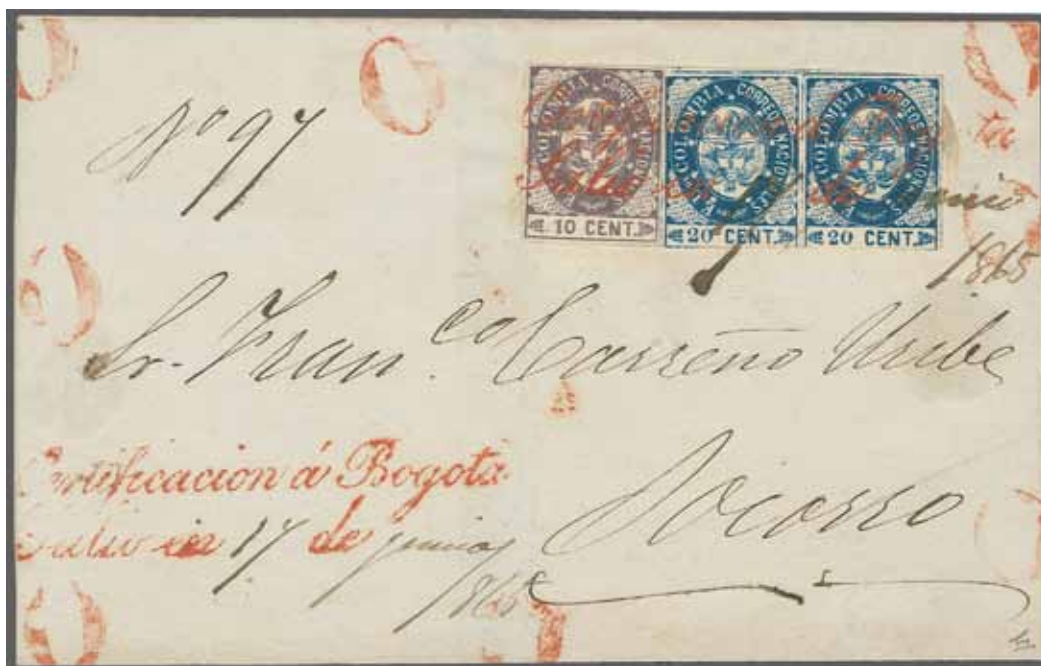 No 97
E.U. COLOMBIA CORREOS NACIONALES
10 CENT.
E.U. COLOMBIA CORREOS NACIONALES
20 CENT.
E.U. COLOMBIA CORREOS NACIONALES
20 CENT.
Salio en 17 de junio
1865
Sr. Fran.co Carreño Uribe
Certificacion á Bogota
Salio en 17 de junio
1865
Socorro